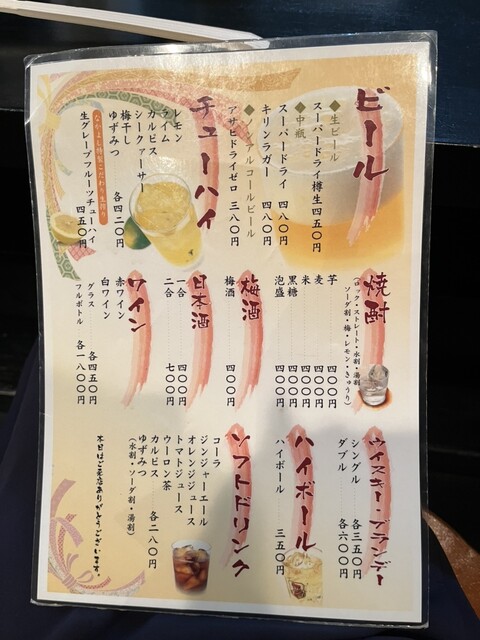 ビール
◆生ビール
スーパードライ樽生 四五〇円
◆中瓶
スーパードライ 四八〇円
キリンラガー 四八〇円
◆ノンアルコールビール
アサヒドライゼロ 三八〇円
チューハイ
レモン
ライム
カルピス
シークァーサー
梅干し
ゆずみつ
各四二〇円
なかよし特製こだわり生搾り
生グレープフルーツチューハイ
四五〇円
焼酎
(ロック・ストレート・水割・湯割
ソーダ割・梅・レモン・きゅうり)
芋 四〇〇円
麦 四〇〇円
米 四〇〇円
黒糖 四〇〇円
泡盛 四〇〇円
梅酒
梅酒 四〇〇円
日本酒
一合 四〇〇円
二合 七〇〇円
ワイン
赤ワイン
白ワイン
グラス 各四五〇円
フルボトル 各一八〇〇円
ウイスキー ブランデー
シングル 各三五〇円
ダブル 各六〇〇円
ハイボール
ハイボール 三五〇円
ソフトドリンク
コーラ
ジンジャーエール
オレンジジュース
トマトジュース
ウーロン茶
カルピス
ゆずみつ
各二八〇円
(水割・ソーダ割・湯割)
本日はご来店ありがとうございます。